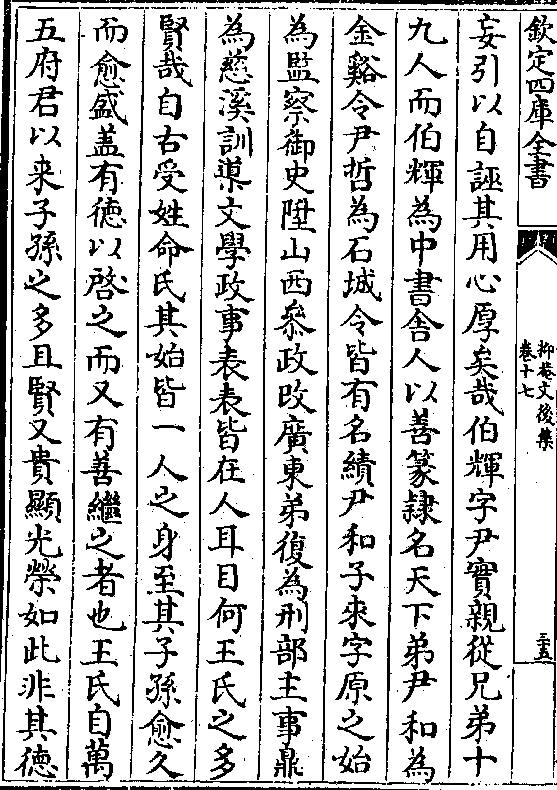 欽定四庫全書
抑菴文後集
卷十七
三五
妄引以自誣其用心厚矣哉伯輝字尹實親從兄弟十
九人而伯輝為中書舍人以善篆隸名天下弟尹和為
金谿令尹哲為石城令皆有名績尹和子來字原之始
為監察御史陞山西叅政改廣東弟復為刑部主事鼎
為慈溪訓導文學政事表表皆在人耳目何王氏之多
賢哉自古受姓命氏其始皆一人之身至其子孫愈久
而愈盛葢有德以啓之而又有善繼之者也王氏自萬
五府君以来子孫之多且賢又貴顯光榮如此非其德